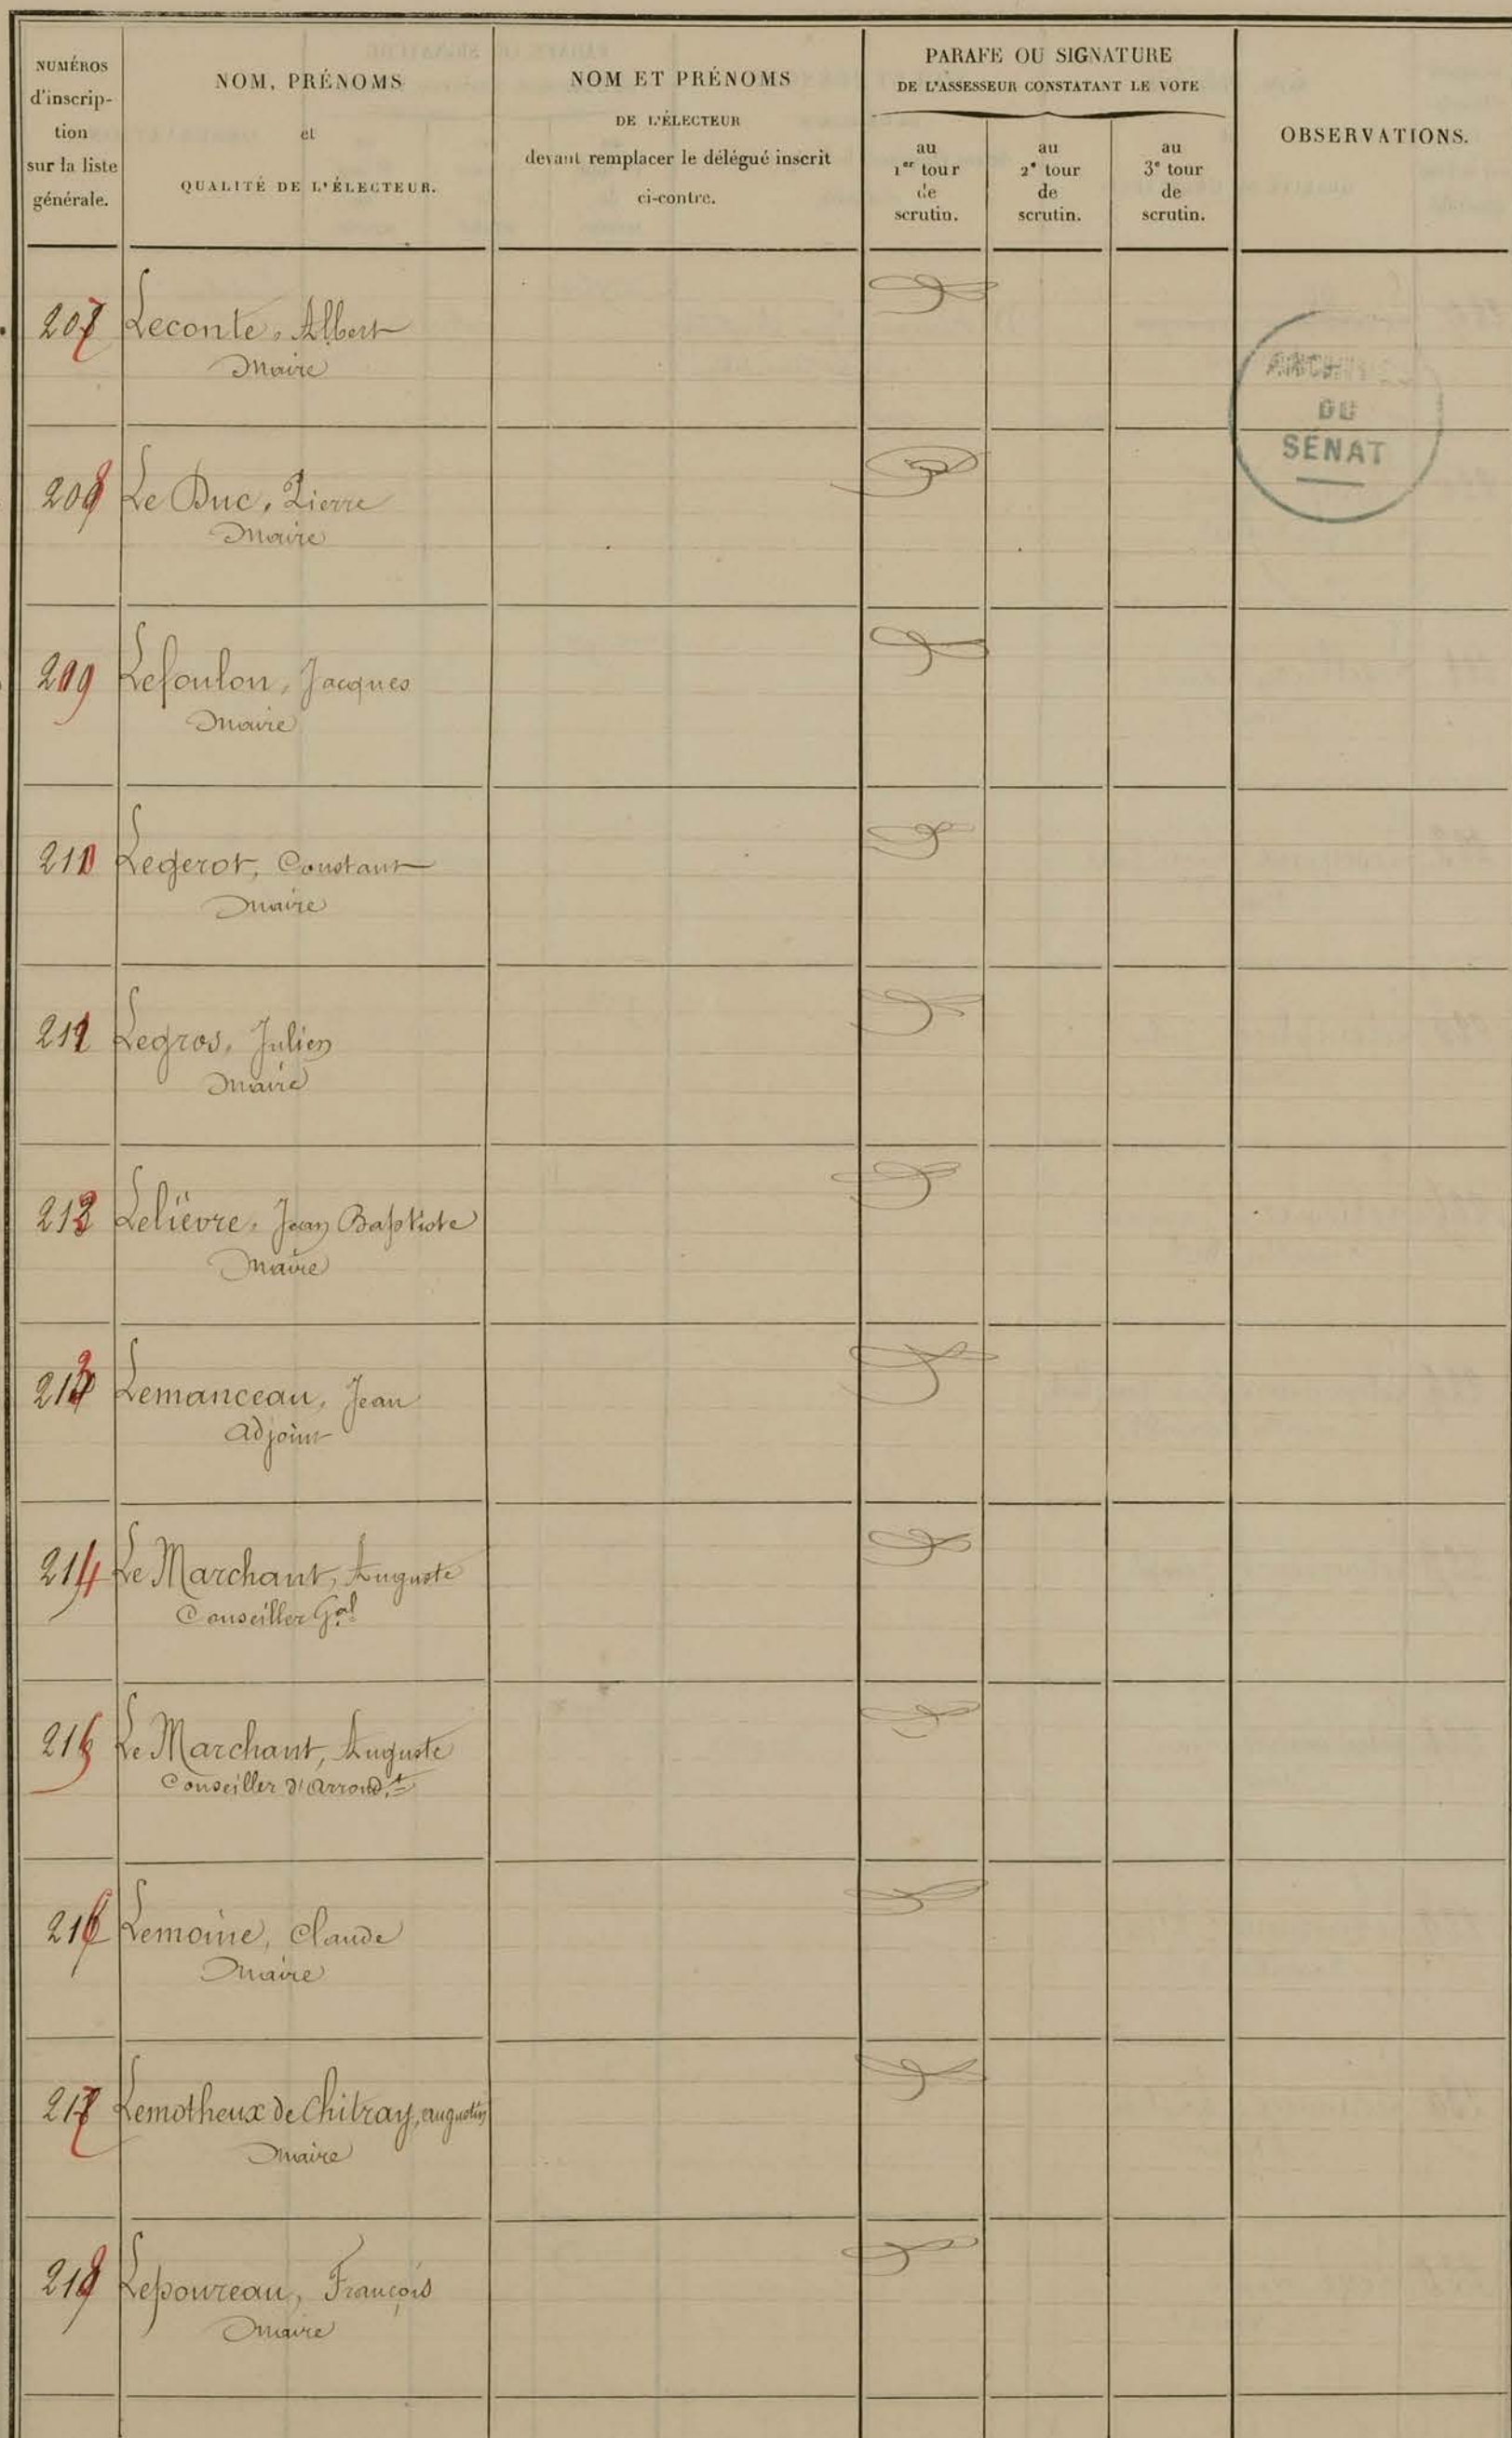 NUMÉROS
d'inscrip-
tion
sur la liste
générale.
NOM, PRÉNOMS
et
QUALITÉ DE L'ÉLECTEUR.
NOM ET PRÉNOMS
DE L'ÉLECTEUR
devant remplacer le délégué inscrit
ci-contre.
PARAFE OU SIGNATURE
DE L'ASSESSEUR CONSTATANT LE VOTE
au
1er tour
de
scrutin.
au
2e tour
de
scrutin.
au
3e tour
de
scrutin.
OBSERVATIONS.
207 Leconte, Albert
Maire
208 Le Duc, Pierre
Maire
209 Lefoulon, Jacques
Maire
210 Legerot, Constant
Maire
211 Legros, Julien
Maire
212 Lelièvre, Jean Baptiste
Maire
213 Lemanceau, Jean
Adjoint
214 Le Marchant, Auguste
Conseiller Gal
215 Le Marchant, Auguste
Conseiller d'Arrondt
216 Lemoine, Claude
Maire
217 Lemotheux de Chitray, Augustin
Maire
218 Lepoureau, François
Maire
DU
SÉNAT